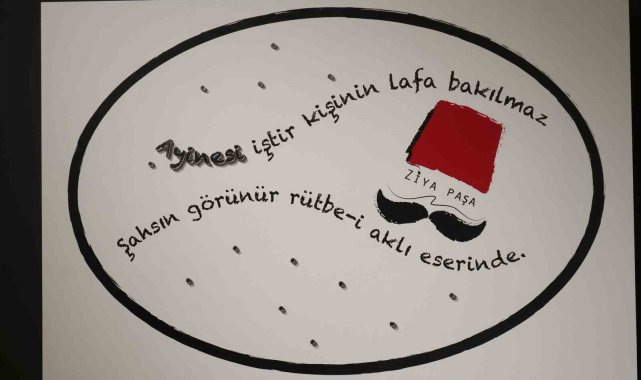 Ayinesi iştir kişinin lafa bakılmaz
ZİYA PAŞA
Şahsın görünür rütbe-i aklı eserinde.